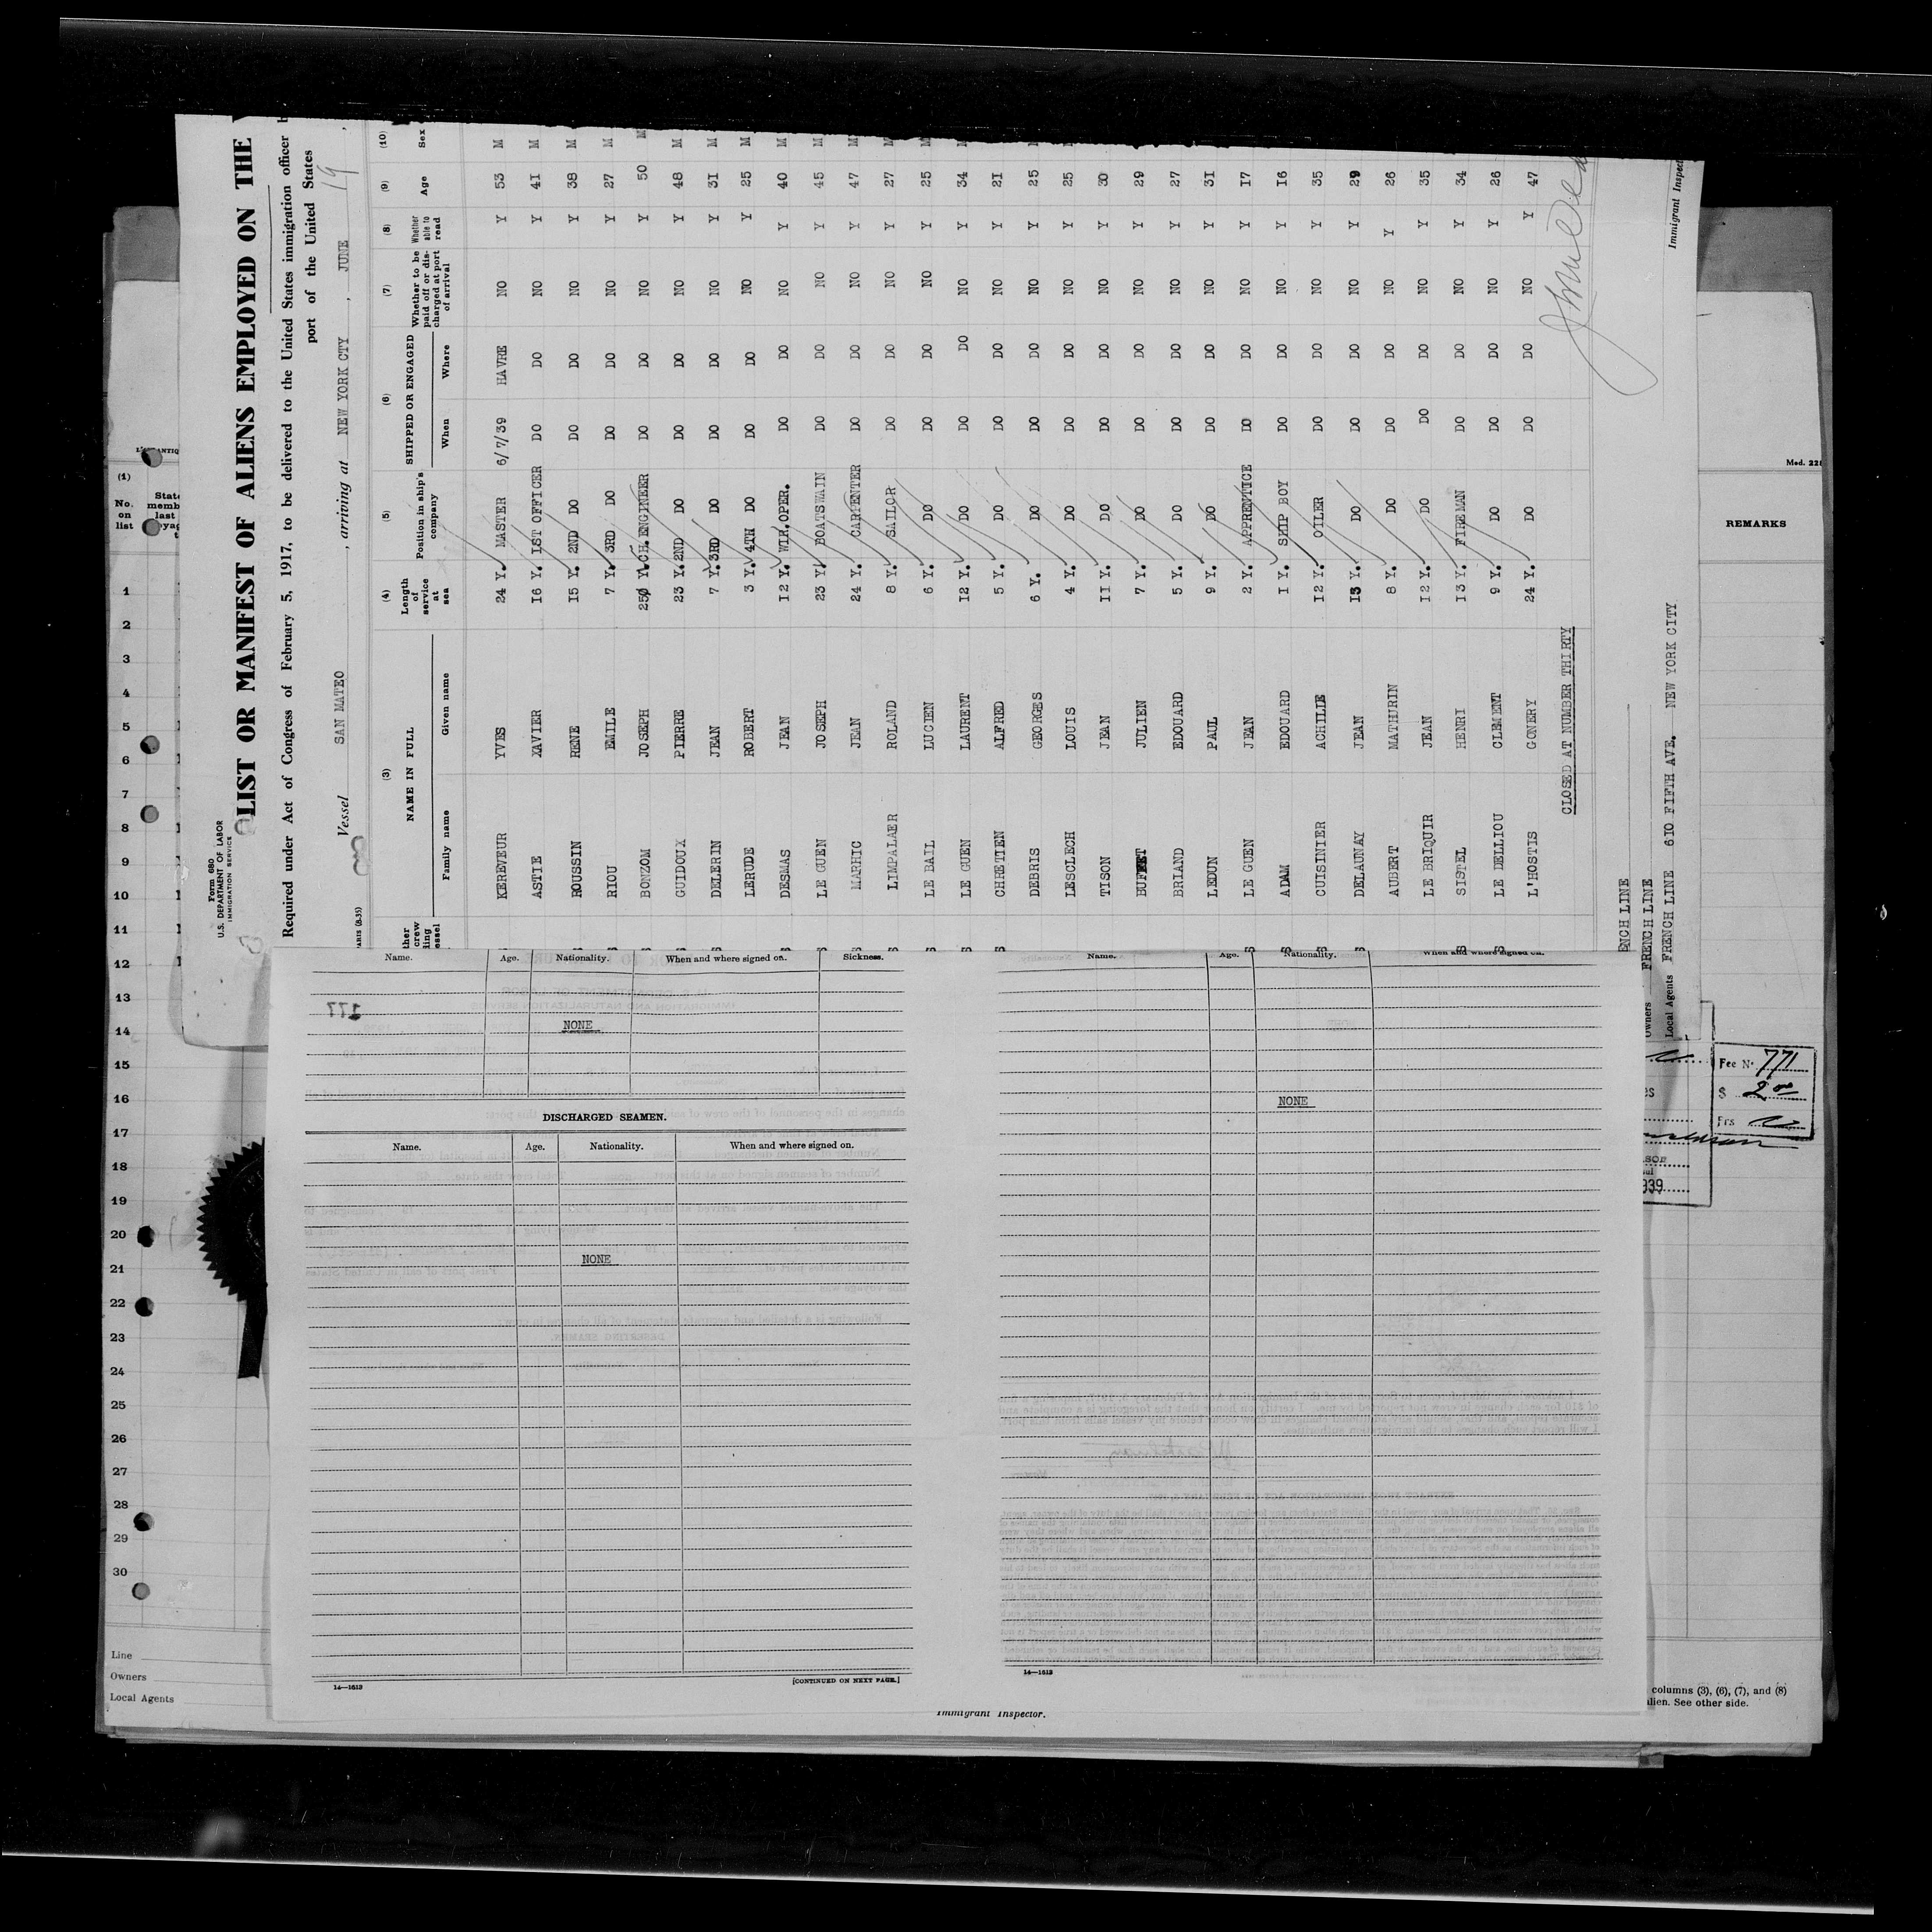 Form 680
U.S. DEPARTMENT OF LABOR
IMMIGRATION SERVICE
LIST OR MANIFEST OF ALIENS EMPLOYED ON THE
Required under Act of Congress of February 5, 1917, to be delivered to the United States immigration officer
port of the United States
Vessel SAN MATEO , arriving at NEW YORK CTY , JUNE 19 ,
PARIS (8-35)
(3) (4) (5) (6) (7) (8) (9) (10)
NAME IN FULL Length of service at sea Position in ship's company SHIPPED OR ENGAGED Whether to be paid off or discharged at port of arrival Whether able to read Age Sex
Family name Given name When Where
KEREVEUR YVES 24 Y. MASTER 6/7/39 HAVRE NO Y 53 M
ASTIE XAVIER 16 Y. 1ST OFFICER DO DO NO Y 41 M
ROUSSIN RENE 15 Y. 2ND DO DO DO NO Y 38 M
RIOU EMILE 7 Y. 3RD DO DO DO NO Y 27 M
BONZOM JOSEPH 25 Y. CH.ENGINEER DO DO NO Y 50 M
GUIDOUX PIERRE 23 Y. 2ND DO DO DO NO Y 48 M
DELERIN JEAN 7 Y. 3RD DO DO DO NO Y 31 M
LERUDE ROBERT 3 Y. 4TH DO DO DO NO Y 25 M
DESMAS JEAN 12 Y. WIR.OPER. DO DO NO Y 40 M
LE GUEN JOSEPH 23 Y. BOATSWAIN DO DO NO Y 45 M
MARHIC JEAN 24 Y. CARPENTER DO DO NO Y 47 M
LIMPALAER ROLAND 8 Y. SAILOR DO DO NO Y 27 M
LE BAIL LUCIEN 6 Y. DO DO DO NO Y 25 M
LE GUEN LAURENT 12 Y. DO DO DO NO Y 34 M
CHRETIEN ALFRED 5 Y. DO DO DO NO Y 21
DEBRIS GEORGES 6 Y. DO DO DO NO Y 25
LESCLECH LOUIS 4 Y. DO DO DO NO Y 25
TISON JEAN 11 Y. DO DO DO NO Y 30
BUFFET JULIEN 7 Y. DO DO DO NO Y 29
BRIAND EDOUARD 5 Y. DO DO DO NO Y 27
LEDUN PAUL 9 Y. DO DO DO NO Y 31
LE GUEN JEAN 2 Y. APPRENTICE DO DO NO Y 17
ADAM EDOUARD 1 Y. SHIP BOY DO DO NO Y 16
CUISINIER ACHILLE 12 Y. OILER DO DO NO Y 35
DELAUNAY JEAN 13 Y. DO DO DO NO Y 29
AUBERT MATHURIN 8 Y. DO DO DO NO Y 26
LE BRIQUIR JEAN 12 Y. DO DO DO NO Y 35
SISTEL HENRI 13 Y. FIREMAN DO DO NO Y 34
LE DELLIOU CLEMENT 9 Y. DO DO DO NO Y 26
L'HOSTIS GONERY 24 Y. DO DO DO NO Y 47
CLOSED AT NUMBER THIRTY
ENCH LINE
Owners FRENCH LINE
Local Agents FRENCH LINE 610 FIFTH AVE. NEW YORK CITY
Immigrant Inspec
(1)
No. on list
1
2
3
4
5
6
7
8
9
10
11
12
13
14
15
16
17
18
19
20
21
22
23
24
25
26
27
28
29
30
Line
Owners
Local Agents
Mod. 22
REMARKS
Name. Age. Nationality. When and where signed on. Sickness.
177
NONE
DISCHARGED SEAMEN.
Name. Age. Nationality. When and where signed on.
NONE
14—1613
[CONTINUED ON NEXT PAGE.]
Name. Age. Nationality. When and where signed on.
NONE
14—1613
Fee No 771
$ 2 00
Frs
939
columns (3), (6), (7), and (8)
alien. See other side.
Immigrant Inspector.